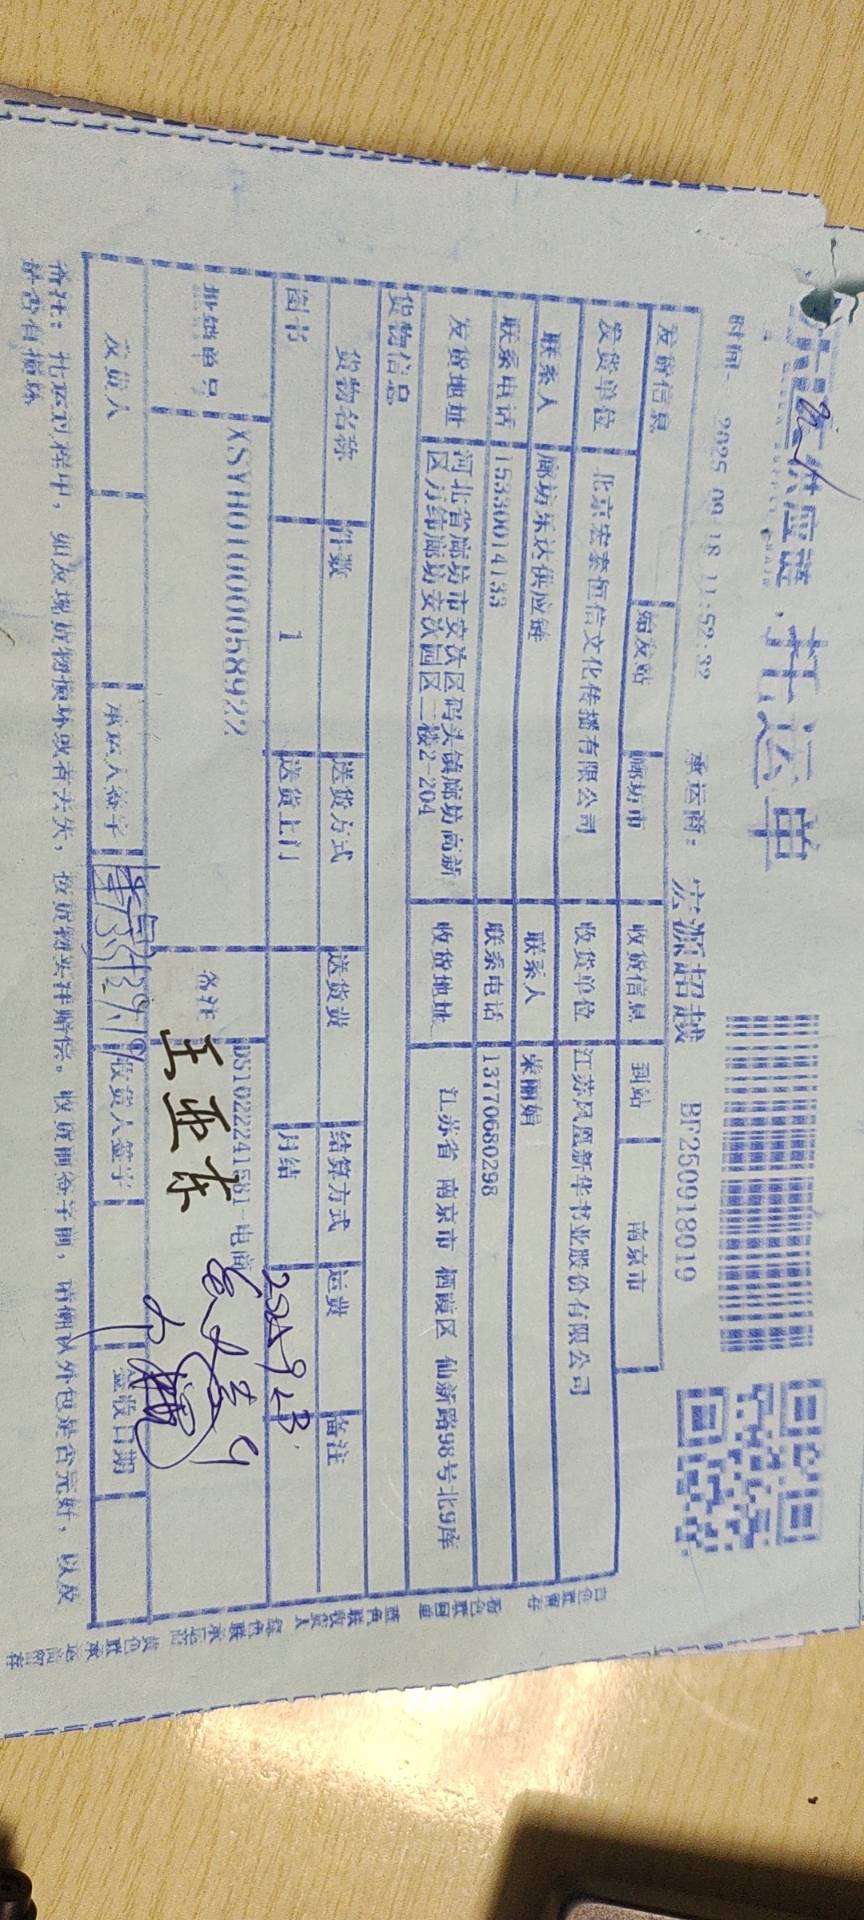 供应链·托运单
时间: 2025-09-18 11:52:32 承运商: 宏源超越 BF250918019
发货信息 始发站 廊坊市 收货信息 到站 南京市
发货单位 北京宏泰恒信文化传播有限公司 收货单位 江苏凤凰新华书业股份有限公司
联系人 廊坊乐达供应链 联系人 丽娟
联系电话 15330014133 联系电话 13770680298
发货地址 河北省廊坊市安次区码头镇廊坊高新
区万纬廊坊安次园区二楼2-204 收货地址 江苏省 南京市 栖霞区 仙新路98号北9库
货物信息
货物名称 件数 送货方式 送货费 结算方式 运费 备注
图书 1 送货上门 月结
单号 XSYH01000058922 备注 DS1022241581-电商
王亚东
发货人 承运人签字 收货人签字 签收日期
备注: 托运过程中, 如发现货物损坏或者丢失, 按货物实洋赔偿。收货前签字前, 请确认外包是否完好, 以及
是否有损坏